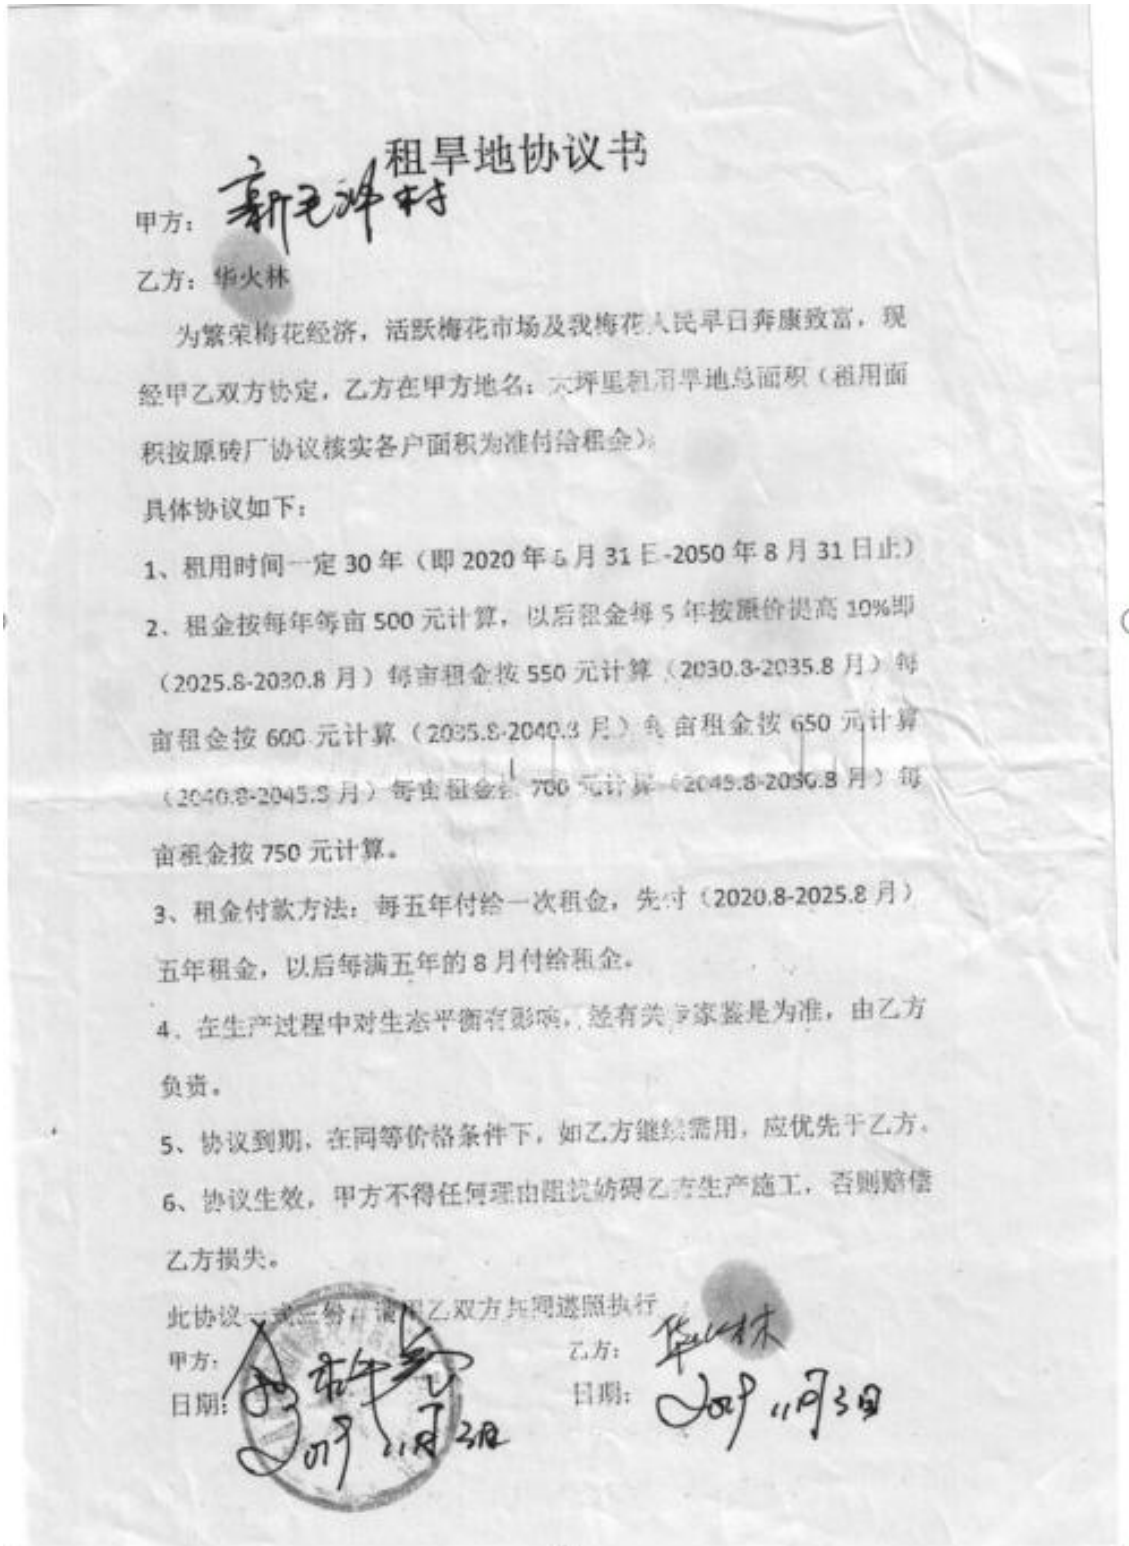 租旱地协议书
甲方：新毛坪村
乙方：华火林
为繁荣梅花经济，活跃梅花市场及我梅花人民早日奔康致富，现
经甲乙双方协定，乙方在甲方地名：大坪里租用旱地总面积（租用面
积按原砖厂协议核实各户面积为准付给租金）。
具体协议如下：
1、租用时间一定 30 年（即 2020 年 8 月 31 日-2050 年 8 月 31 日止）
2、租金按每年每亩 500 元计算，以后租金每 5 年按原价提高 10%即
（2025.8-2030.8 月）每亩租金按 550 元计算（2030.8-2035.8 月）每
亩租金按 600 元计算（2035.8-2040.8 月）每亩租金按 650 元计算
（2040.8-2045.8 月）每亩租金按 700 元计算（2045.8-2050.8 月）每
亩租金按 750 元计算。
3、租金付款方法：每五年付给一次租金，先付（2020.8-2025.8 月）
五年租金，以后每满五年的 8 月付给租金。
4、在生产过程中对生态平衡有影响，经有关专家鉴是为准，由乙方
负责。
5、协议到期，在同等价格条件下，如乙方继续需用，应优先于乙方。
6、协议生效，甲方不得任何理由阻扰妨碍乙方生产施工，否则赔偿
乙方损失。
此协议一式三份，请甲乙双方共同遵照执行
甲方： 乙方：华火林
日期：2019 11月3日 日期：2019 11月3日